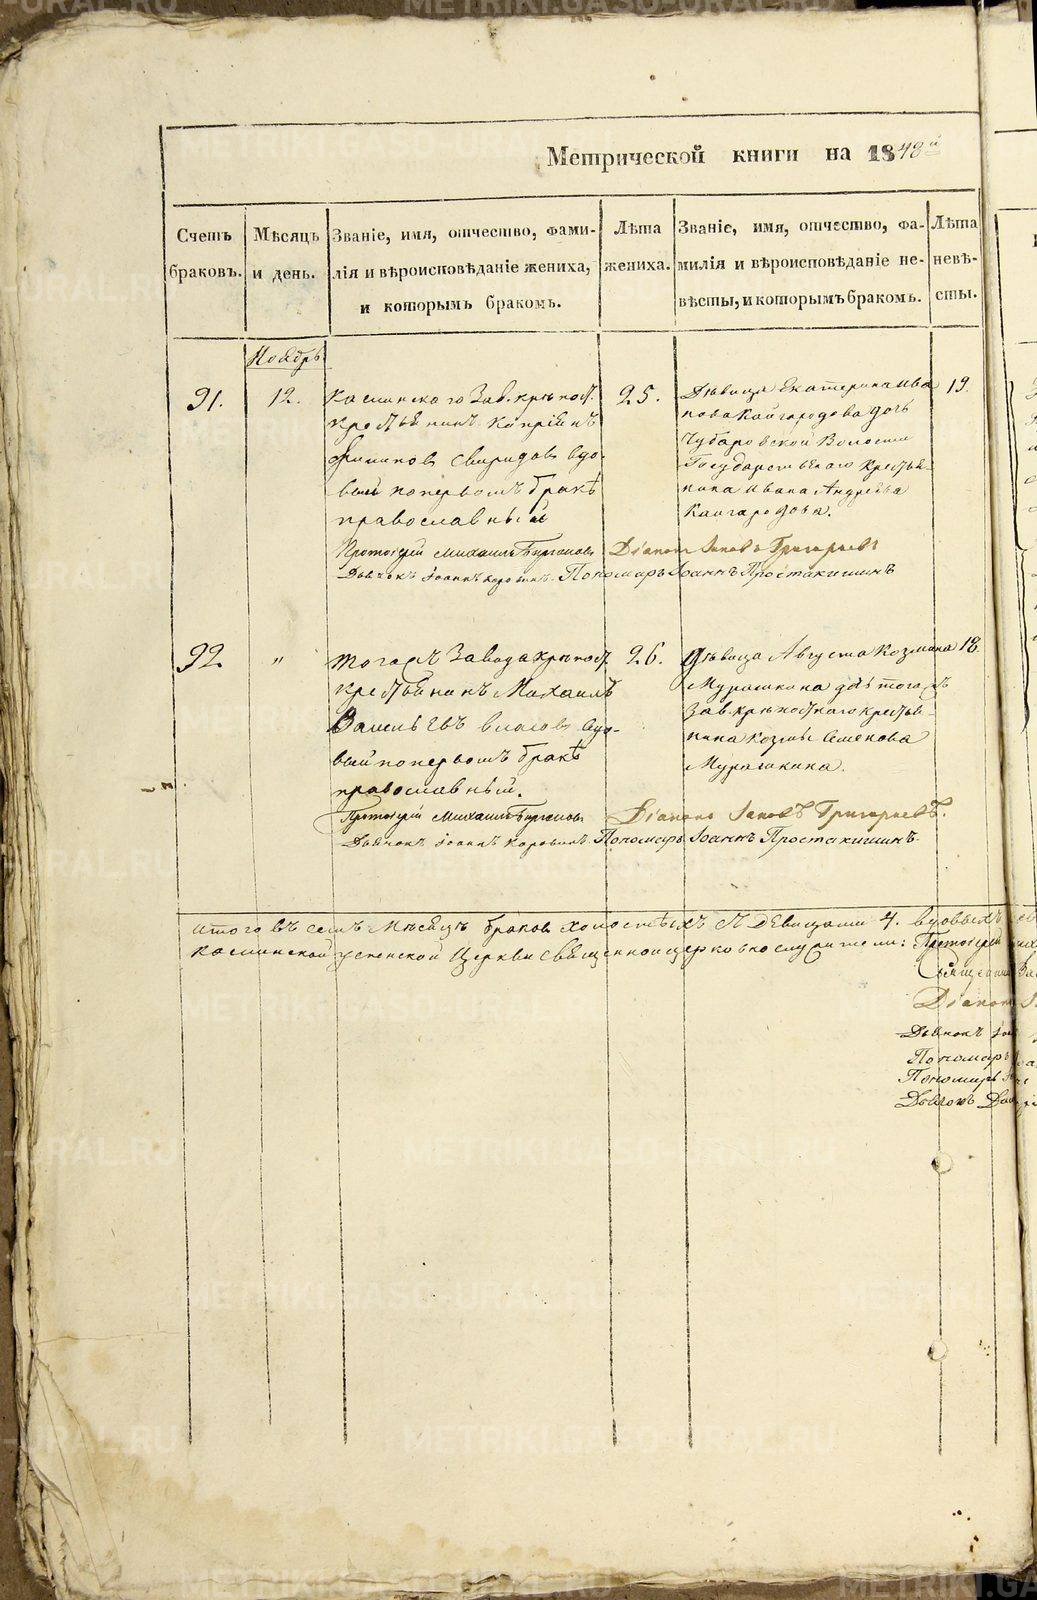 Метрической книги на 1848й
Счетъ браковъ.
Мѣсяцъ и день.
Званіе, имя, отчество, фами-
лія и вѣроисповѣданіе жениха,
и которымъ бракомъ.
Лѣта жениха.
Званіе, имя, отчество, фа-
милія и вѣроисповѣданіе не-
вѣсты, и которымъ бракомъ.
Лѣта невѣ-
сты.
Ноябрь
91. 12.
Каслинскаго Зав. крѣпост.
крестьянинъ
Филиповъ Свиридовъ вдо-
вый по первомъ бракѣ
православный
25.
Дѣвица Екатерина Ива
нова Кайгородова дочь
Чубаровской Волости
Государственаго крестья-
нина Ивана Андреева
Кайгородова.
19.
Протоіерей Михаилъ Діаконъ Іаковъ Григорьевъ
Дьячокъ Іоаннъ Коровинъ Пономарь Іоаннъ Простакишинъ
92. "
Тогожъ Завода крѣпост.
крестьянинъ Михаилъ
Васильевъ Власовъ вдо-
вый по первомъ бракѣ
православный.
26.
Дѣвица Августа Козмина
Мурашкина дочь тогожъ
Зав. крѣпостнаго крестья-
нина Козмы Семенова
Мурашкина.
18.
Протоіерей Михаилъ Діаконъ Іаковъ Григорьевъ.
Дьячокъ Іоаннъ Коровинъ Пономарь Іоаннъ Простакишинъ.
Итого въ семъ Мѣсяцѣ браковъ холостыхъ съ Девицами 4. вдовыхъ
Каслинской Успенской Церкви Священноцерковнослужители: Протоіерей
Священникъ
Діаконъ
Дьячокъ
Пономарь
Пономарь
Дьячокъ
METRIKI.GASO-URAL.RU